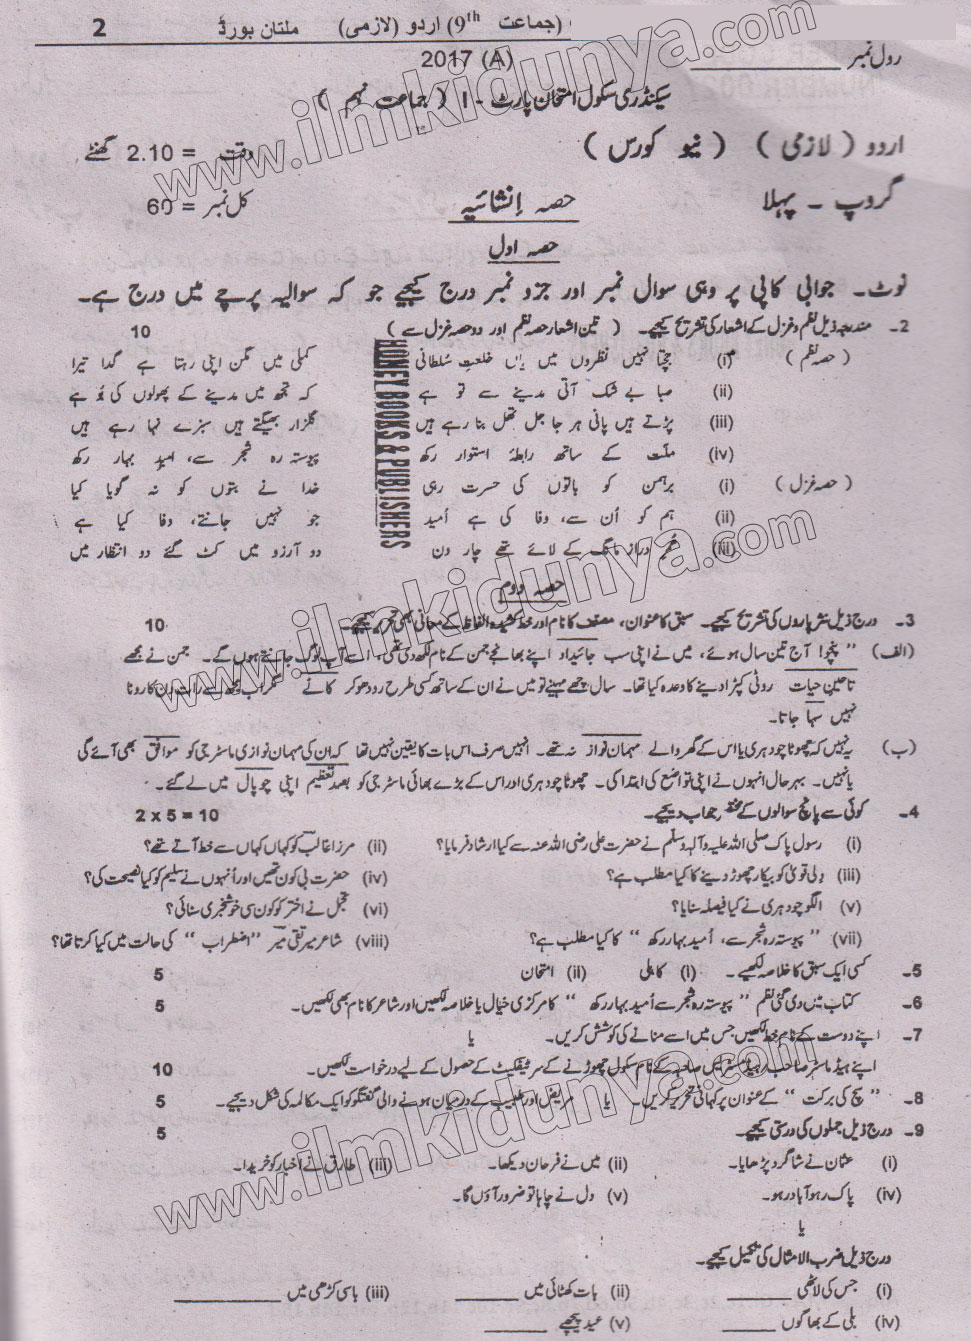 (جماعت 9th) اردو (لازمی) ملتان بورڈ 2
رول نمبر ____________ 2017 (A)
سیکنڈری سکول امتحان پارٹ - I ( جماعت نہم )
اردو ( لازمی ) ( نیو کورس ) وقت = 2.10 گھنٹے
گروپ ۔ پہلا حصہ اِنشائیہ کل نمبر = 60
حصہ اول
نوٹ۔ جوابی کاپی پر وہی سوال نمبر اور جزو نمبر درج کیجیے جو کہ سوالیہ پرچے میں درج ہے۔
2۔ مندرجہ ذیل نظم و غزل کے اشعار کی تشریح کیجیے۔ ( تین اشعار حصہ نظم اور دو حصہ غزل سے ) 10
( حصہ نظم ) (i) جچتا نہیں نظروں میں یاں خلعتِ سُلطانی کملی میں مگن اپنی رہتا ہے گدا تیرا
(ii) صبا بے شک آتی مدینے سے تو ہے کہ تجھ میں مدینے کے پھولوں کی بُو ہے
(iii) پڑتے ہیں پانی ہر جا جل تھل بنا رہے ہیں گلزار بھیگتے ہیں سبزے نہا رہے ہیں
(iv) ملّت کے ساتھ رابطۂ استوار رکھ پیوستہ رہ شجر سے، امیدِ بہار رکھ
( حصہ غزل ) (i) برہمن کو باتوں کی حسرت رہی خدا نے بتوں کو نہ گویا کیا
(ii) ہم کو اُن سے، وفا کی ہے اُمید جو نہیں جانتے، وفا کیا ہے
(iii) عُمرِ دراز مانگ کے لائے تھے چار دن دو آرزو میں کٹ گئے دو انتظار میں
HOMEY BOOKS & PUBLISHERS
حصہ دوم
3۔ درج ذیل نثر پاروں کی تشریح کیجیے۔ سبق کا عنوان، مصنف کا نام اور خط کشیدہ الفاظ کے معانی بھی تحریر کیجیے۔ 10
(الف) "پنچو! آج تین سال ہوئے، میں نے اپنی سب جائیداد اپنے بھانجے جمن کے نام لکھ دی تھی، اسے آپ لوگ جانتے ہوں گے۔ جمن نے مجھے
تاحینِ حیات روٹی کپڑا دینے کا وعدہ کیا تھا۔ سال چھے مہینے تو میں نے ان کے ساتھ کسی طرح رو دھو کر کاٹے مگر اب مجھ سے رات دن کا رونا
نہیں سہا جاتا۔
(ب) یہ نہیں کہ چھوٹا چودہری یا اس کے گھر والے مہمان نواز نہ تھے۔ انہیں صرف اس بات کا یقین نہیں تھا کہ ان کی مہمان نوازی ماسٹر جی کو موافق بھی آئے گی
یا نہیں۔ بہر حال انہوں نے اپنی تواضع کی ابتدا کی۔ چھوٹا چودہری اور اس کے بڑے بھائی ماسٹر جی کو بصد تعظیم اپنی چوپال میں لے گئے۔
4۔ کوئی سے پانچ سوالوں کے مختصر جواب دیجیے۔ 2 x 5 = 10
(i) رسول پاک صلی اللہ علیہ وآلہ وسلم نے حضرت علی رضی اللہ عنہ سے کیا ارشاد فرمایا؟ (ii) مرزا غالب کو کہاں کہاں سے خط آتے تھے؟
(iii) دلی قویٰ کو بیکار چھوڑ دینے کا کیا مطلب ہے؟ (iv) حضرت بی کون تھیں اور اُنہوں نے سلیم کو کیا نصیحت کی؟
(v) الگو چودہری نے کیا فیصلہ سنایا؟ (vi) تجمّل نے اختر کو کون سی خوشخبری سنائی؟
(vii) "پیوستہ رہ شجر سے، اُمید بہار رکھ" کا کیا مطلب ہے؟ (viii) شاعر میر تقی میر "اضطراب" کی حالت میں کیا کرتا تھا؟
5۔ کسی ایک سبق کا خلاصہ لکھیے۔ (i) کاہلی (ii) امتحان 5
6۔ کتاب میں دی گئی نظم "پیوستہ رہ شجر سے اُمید بہار رکھ" کا مرکزی خیال یا خلاصہ لکھیں اور شاعر کا نام بھی لکھیں۔ 5
7۔ اپنے دوست کے نام خط لکھیں جس میں اسے منانے کی کوشش کریں۔ یا
اپنے ہیڈ ماسٹر صاحب/ہیڈ مسٹریس صاحبہ کے نام سکول چھوڑنے کے سرٹیفکیٹ کے حصول کے لیے درخواست لکھیں۔ 10
8۔ "سچ کی برکت" کے عنوان پر کہانی تحریر کریں۔ یا مریض اور طبیب کے درمیان ہونے والی گفتگو کو ایک مکالمہ کی شکل دیجیے۔ 5
9۔ درج ذیل جملوں کی درستی کیجیے۔ 5
(i) عثمان نے شاگرد پڑھایا۔ (ii) میں نے فرحان دیکھا۔ (iii) طارق نے اخبار کو خریدا۔
(iv) پاک رہو آباد رہو۔ (v) دل نے چاہا تو ضرور آؤں گا۔
یا
درج ذیل ضرب الامثال کی تکمیل کیجیے۔
(i) جس کی لاٹھی ________ (ii) بات کھٹائی میں ________ (iii) باسی کڑھی میں ________
(iv) بلی کے بھاگوں ________ (v) عید پیچھے ________
www.ilmkidunya.com
www.ilmkidunya.com
www.ilmkidunya.com